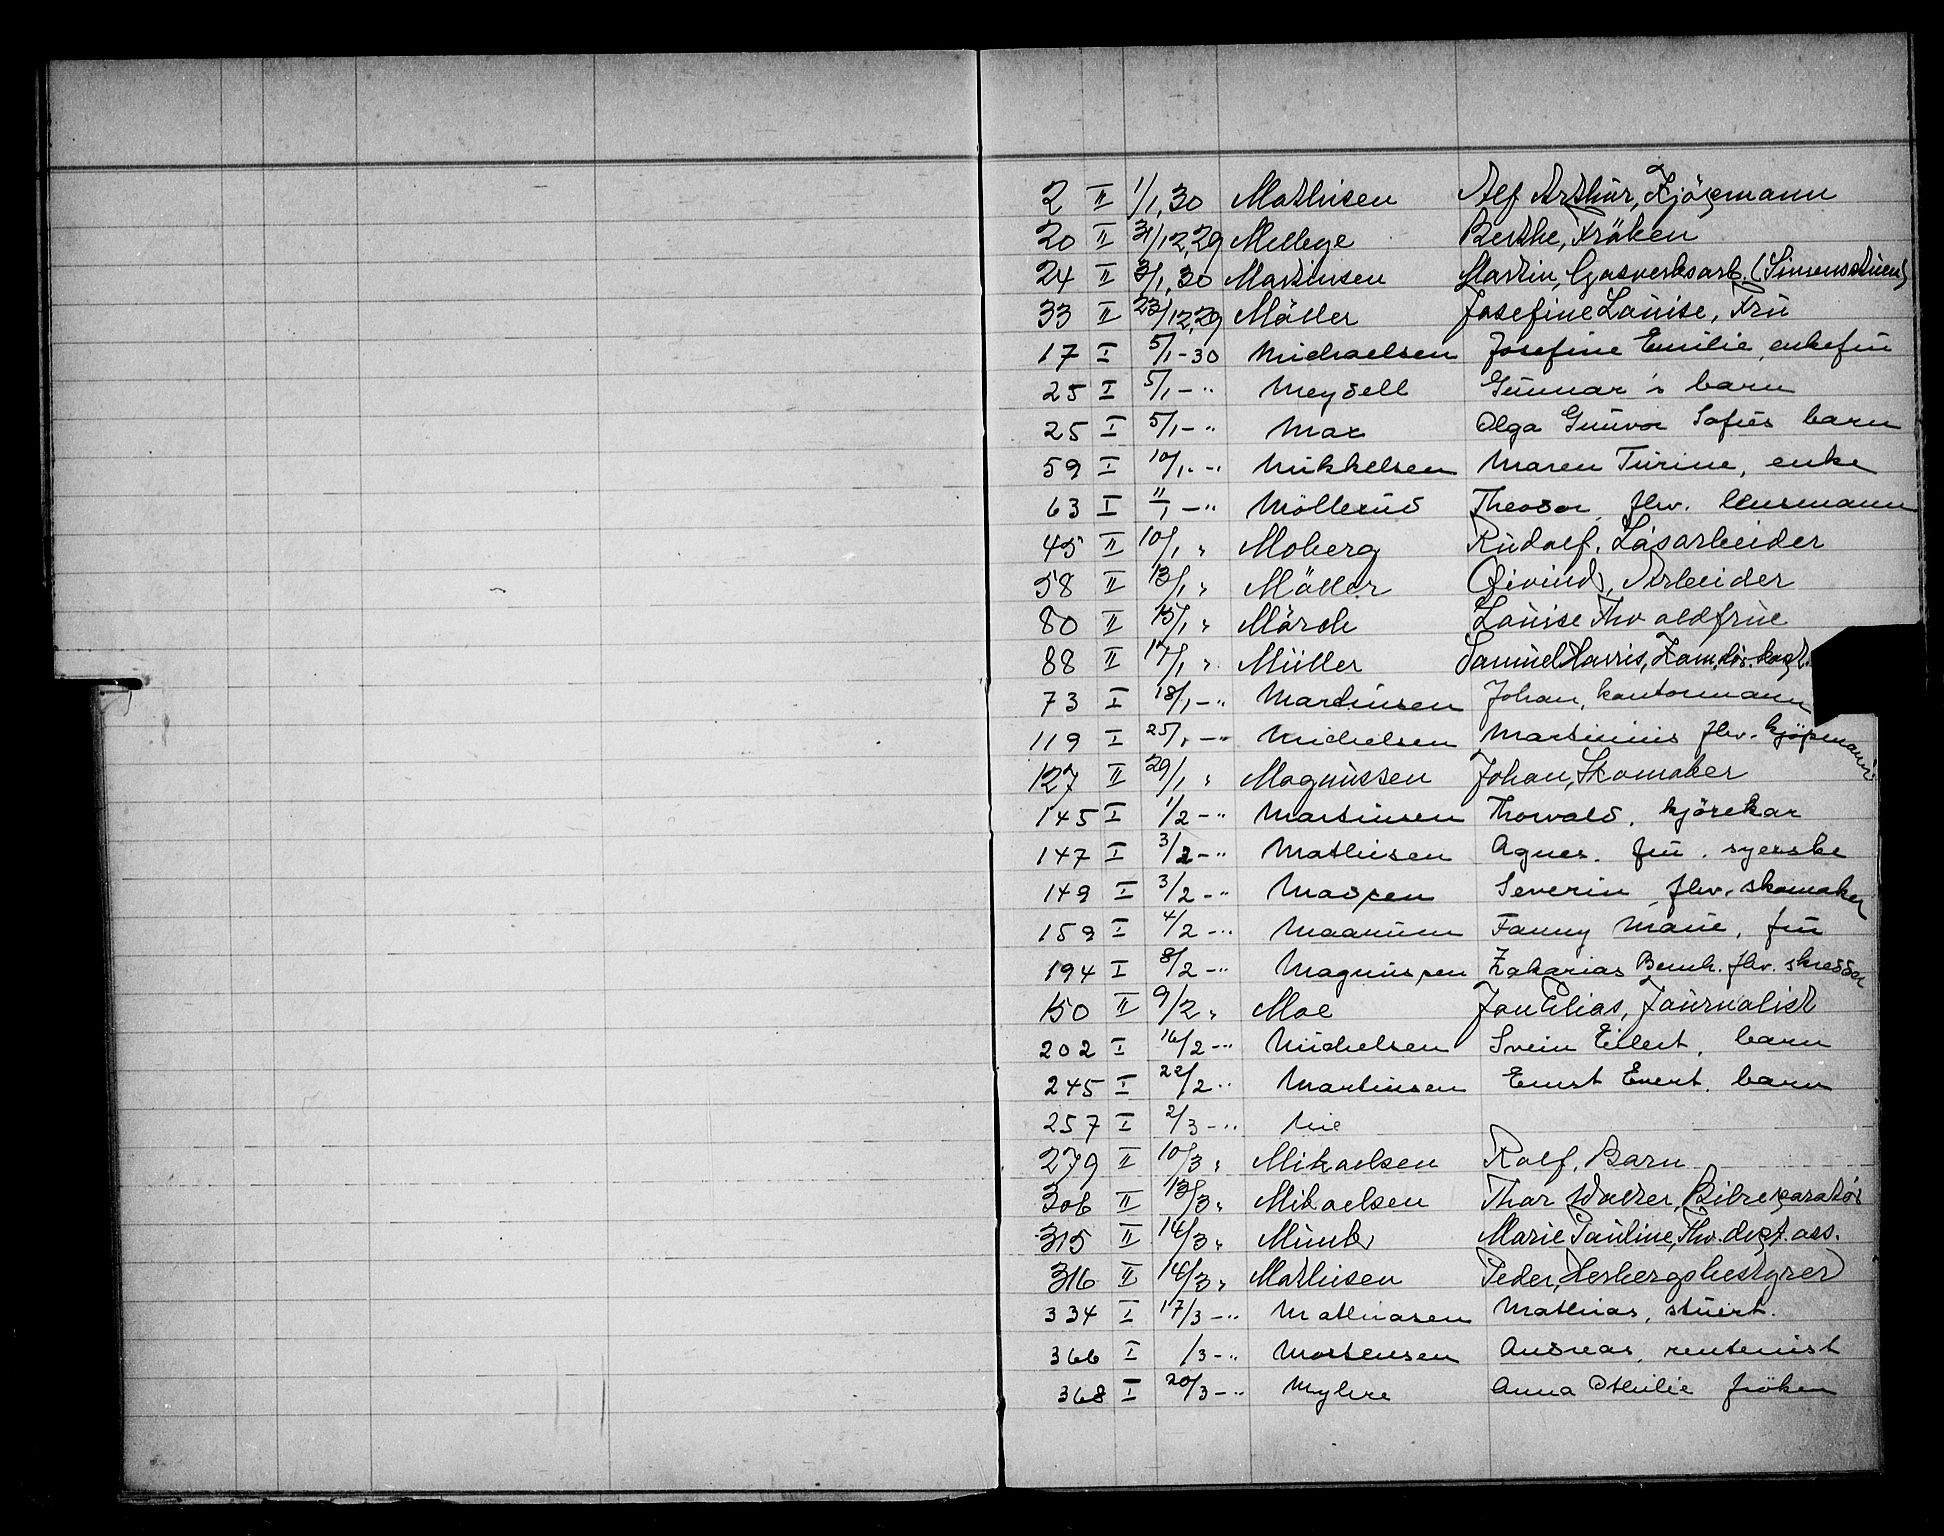 2 II 1/1,30 Mathisen Alf Arthur, Kjøpmann
20 II 31/12,29 Mellege Berthe, Frøken
24 II 3/1,30 Martinsen Martin, Gasverksarb. (Simensstuen)
33 II 23/12,29 Møller Josefine Louise, Fru
17 I 5/1-30 Michaelsen Josefine Emilie, enkefru
25 I 5/1-" Meydell Gunnar's barn
25 I 5/1-" Max Olga Gunvor Sofies barn
59 I 10/1-" Mikkelsen Maren Turine, enke
63 I 11/1-" Möllerud Theodor, fhv. lensmann
45 II 10/1 " Moberg Rudolf, Løsarbeider
58 II 13/1 " Møller Øivind, Arbeider
80 II 15/1 " Mørch Louise Thv aldfrue
88 II 17/1 " Müller Samuel Harris,
73 I 18/1-" Martinsen Johan, kontormann
119 I 25/1-" Michelsen Martinius fhv. kjøpmann
127 II 29/1 " Magnussen Johan, Skomaker
145 I 1/2-" Martinsen Thorvald, kjørekar
147 I 3/2-" Mathisen Agnes, fru, syerske
149 I 3/2-" Madsen Severin, fhv. skomaker
159 I 4/2-" Maanum Fanny Marie, fru
194 I 8/2-" Magnussen Zakarias Bernh. fhv. skredder
150 II 9/2 " Moe Jon Elias, Journalist
202 I 16/2-" Michelsen Svein Eilert, barn
245 I 22/2-" Martinsen Ernst Evert, barn
257 I 2/3-" Mie
279 II 10/3 " Mikaelsen Rolf, Barn
306 II 13/3 " Mikaelsen Thor Walter, Bilreparatør
315 II 14/3 " Munk Marie Pauline, Thv. dept. ass.
316 II 14/3 " Mathisen Peder, Herbergsbestyrer
334 I 17/3-" Mathiasen Mathias, stuert.
366 I /3-" Mortensen Andreas, rentenist
368 I 20/3-" Myhre Anna Othilie frøken